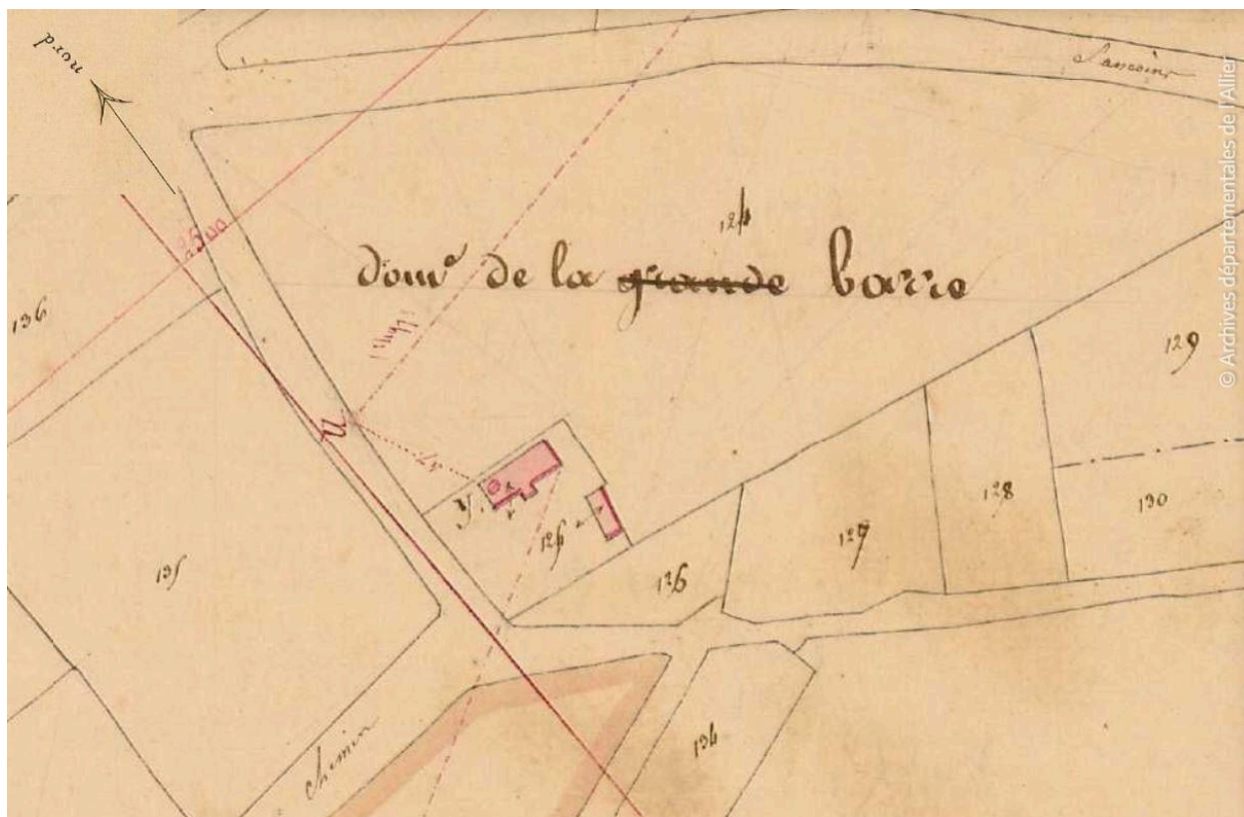 nord
Sancoins
© Archives départementales de l'Allier
2500
124
domᵉ de la grande barre
136
129
U
y.
125
128
130
127
126
135
134
Chemin